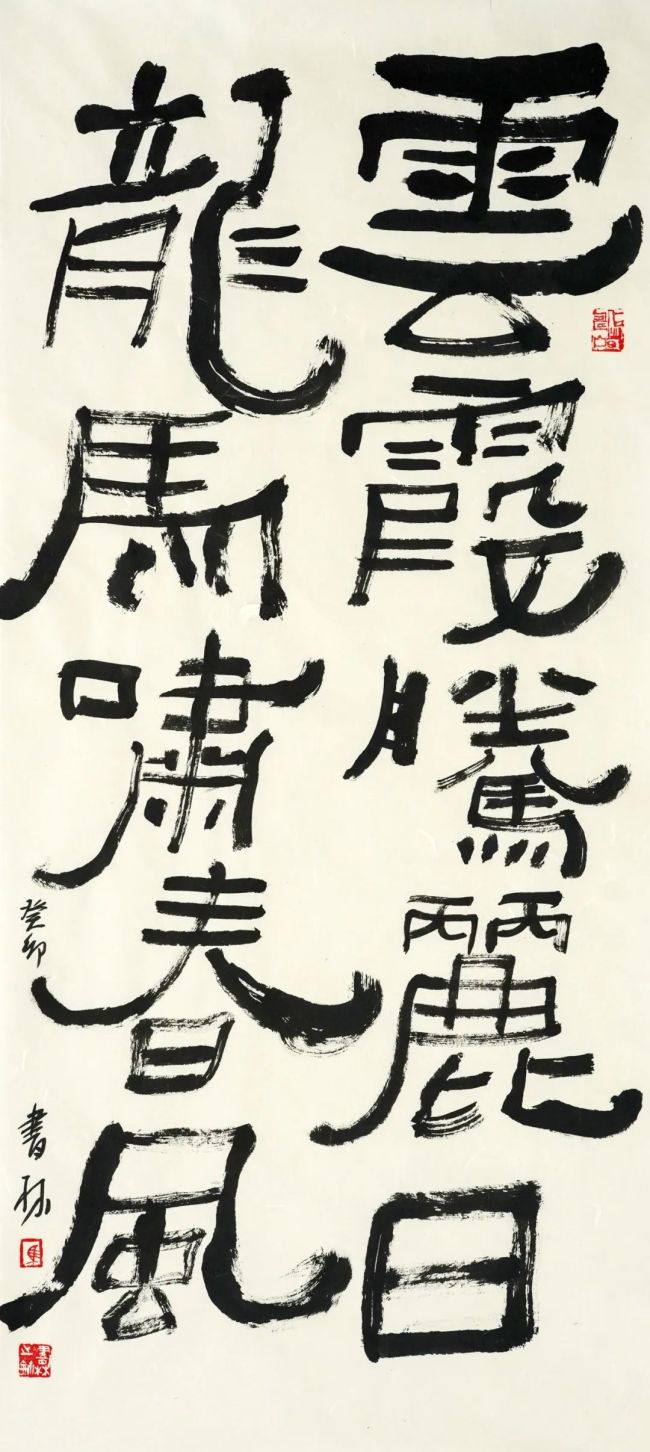 雲霞騰麗日
龍馬嘯春風
癸卯
書林